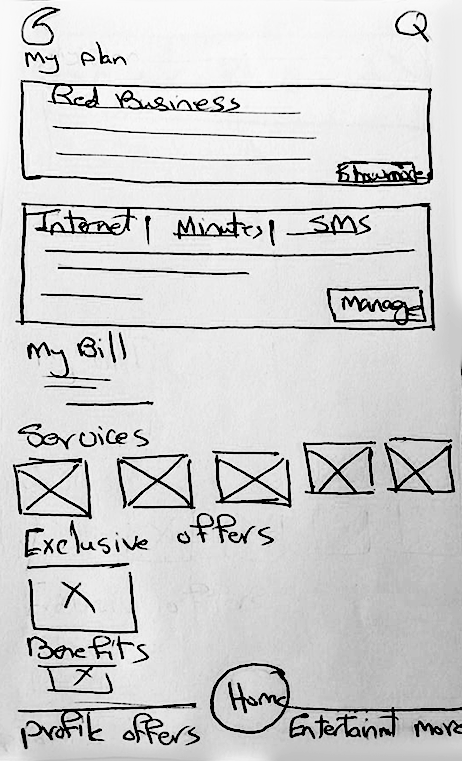 My plan
Red Business
Show more
Internet | Minutes | SMS
Manage
My Bill
Services
Exclusive offers
Benefits
Home
Profile offers Entertainmt more